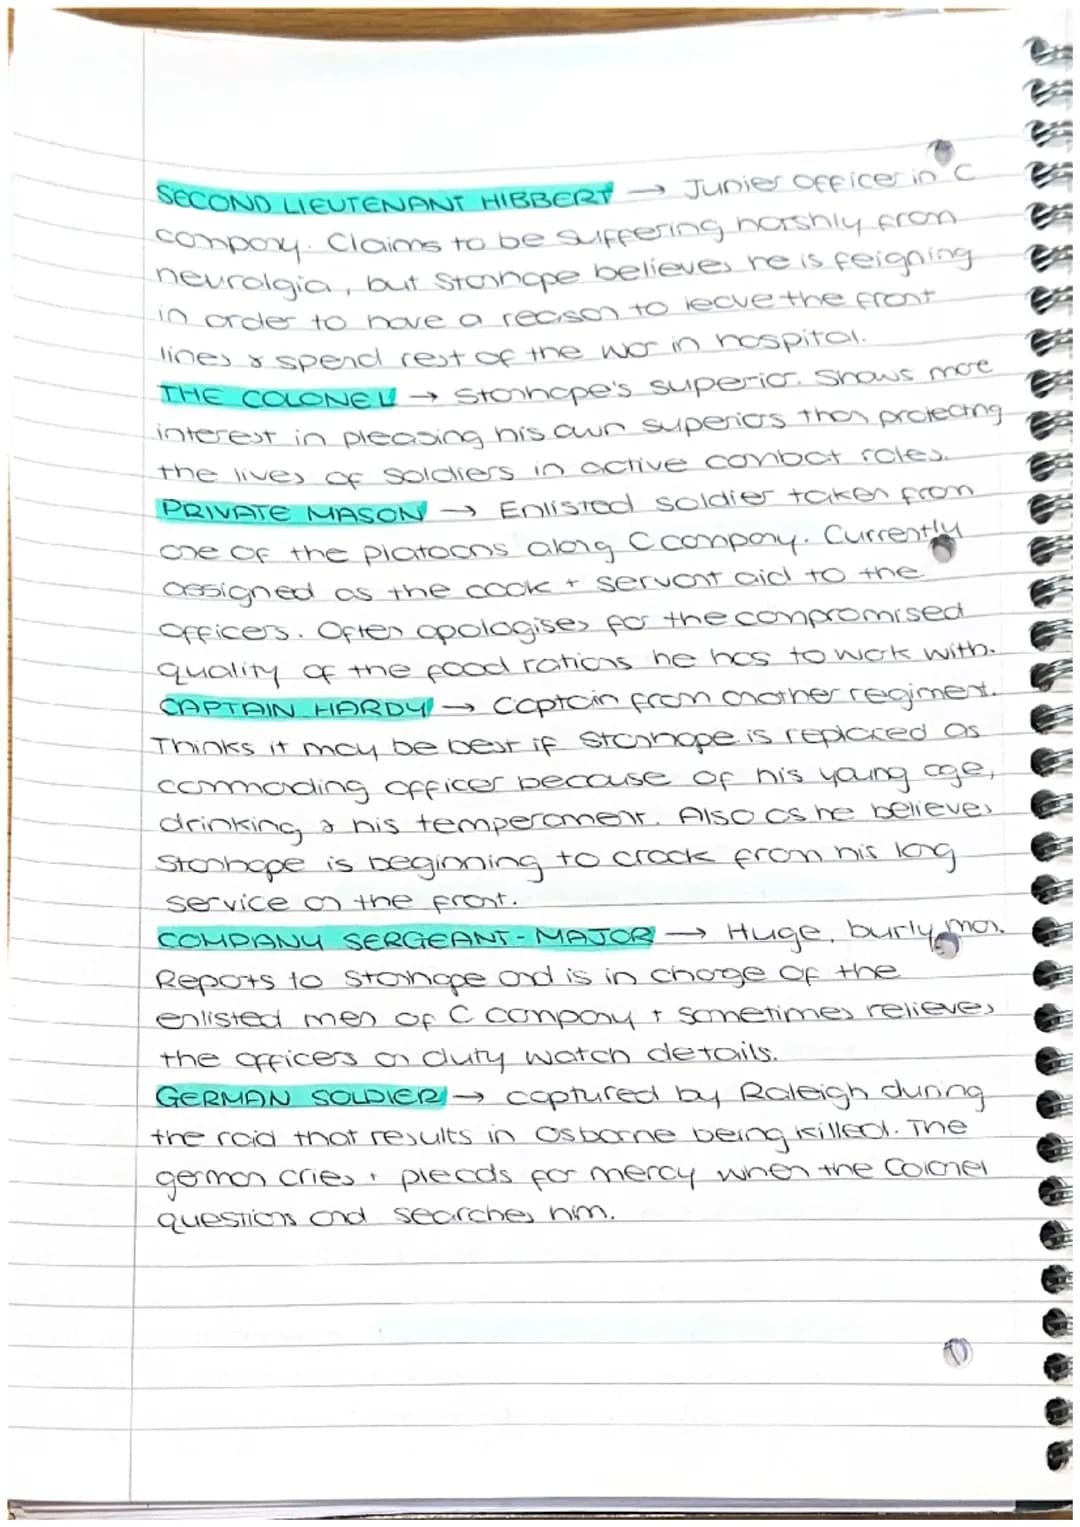 SECOND LIEUTENANT HIBBERT → Junier officer in C
company. Claims to be suffering harshly from
neuralgia, but Stanhope believes he is feigning
in order to have a reason to leave the front
lines & spend rest of the war in hospital.
THE COLONEL → Stanhope's superior. Shows more
interest in pleasing his own superiors than protecting
the lives of soldiers in active combat roles.
PRIVATE MASON → Enlisted soldier taken from
one of the platoons along C company. Currently
assigned as the cook + servant aid to the
officers. Often apologises for the compromised
quality of the food rations he has to work with.
CAPTAIN HARDY → Captain from another regiment.
Thinks it may be best if Stanhope is replaced as
commading officer because of his young age,
drinking & his temperament. Also as he believes
Stanhope is beginning to crack from his long
service on the front.
COMPANY SERGEANT-MAJOR → Huge, burly man.
Reports to Stanhope and is in charge of the
enlisted men of C company + sometimes relieves
the officers on duty watch details.
GERMAN SOLDIER → captured by Raleigh during
the raid that results in Osborne being killed. The
german cries + pleads for mercy when the Colonel
questions and searches him.